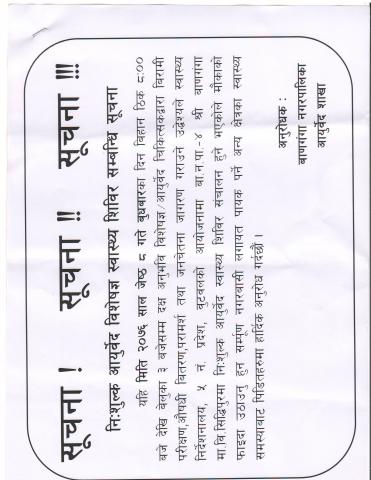 सूचना ! सूचना !! सूचना !!!
निःशुल्क आयुर्वेद विशेषज्ञ स्वास्थ्य शिविर सम्बन्धि सूचना
यहि मिति २०७६ साल जेष्ठ ८ गते बुधबारका दिन बिहान ठिक ८:००
बजे देखि बेलुका ३ बजेसम्म दक्ष अनुभवि विशेषज्ञ/आयुर्वेद चिकित्सकद्वारा विरामी
परीक्षण,औषधी वितरण,परामर्श तथा जनचेतना जागरण गराउने उद्धेश्यले स्वास्थ्य
निर्देशनालय, ५ नं. प्रदेश, बुटवलको आयोजनामा बा.न.पा.-४ श्री बाणगंगा
मा.वि.सिद्धिपुरमा निःशुल्क आयुर्वेद स्वास्थ्य शिविर संचालन हुने भएकोले मौकाको
फाइदा उठाउनु हुन सम्पूर्ण नगरबासी लगायत पायक पर्ने अन्य क्षेत्रका स्वास्थ्य
समस्याबाट पिडितहरुमा हार्दिक अनुरोध गर्दछौं ।
अनुरोधक :
बाणगंगा नगरपालिका
आयुर्वेद शाखा